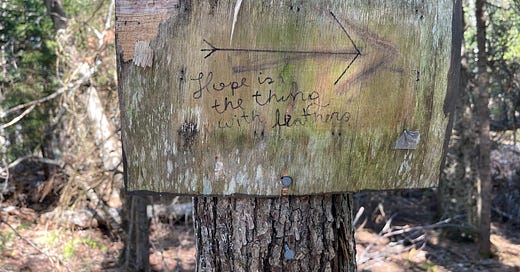 Hope is
the thing
with feathers